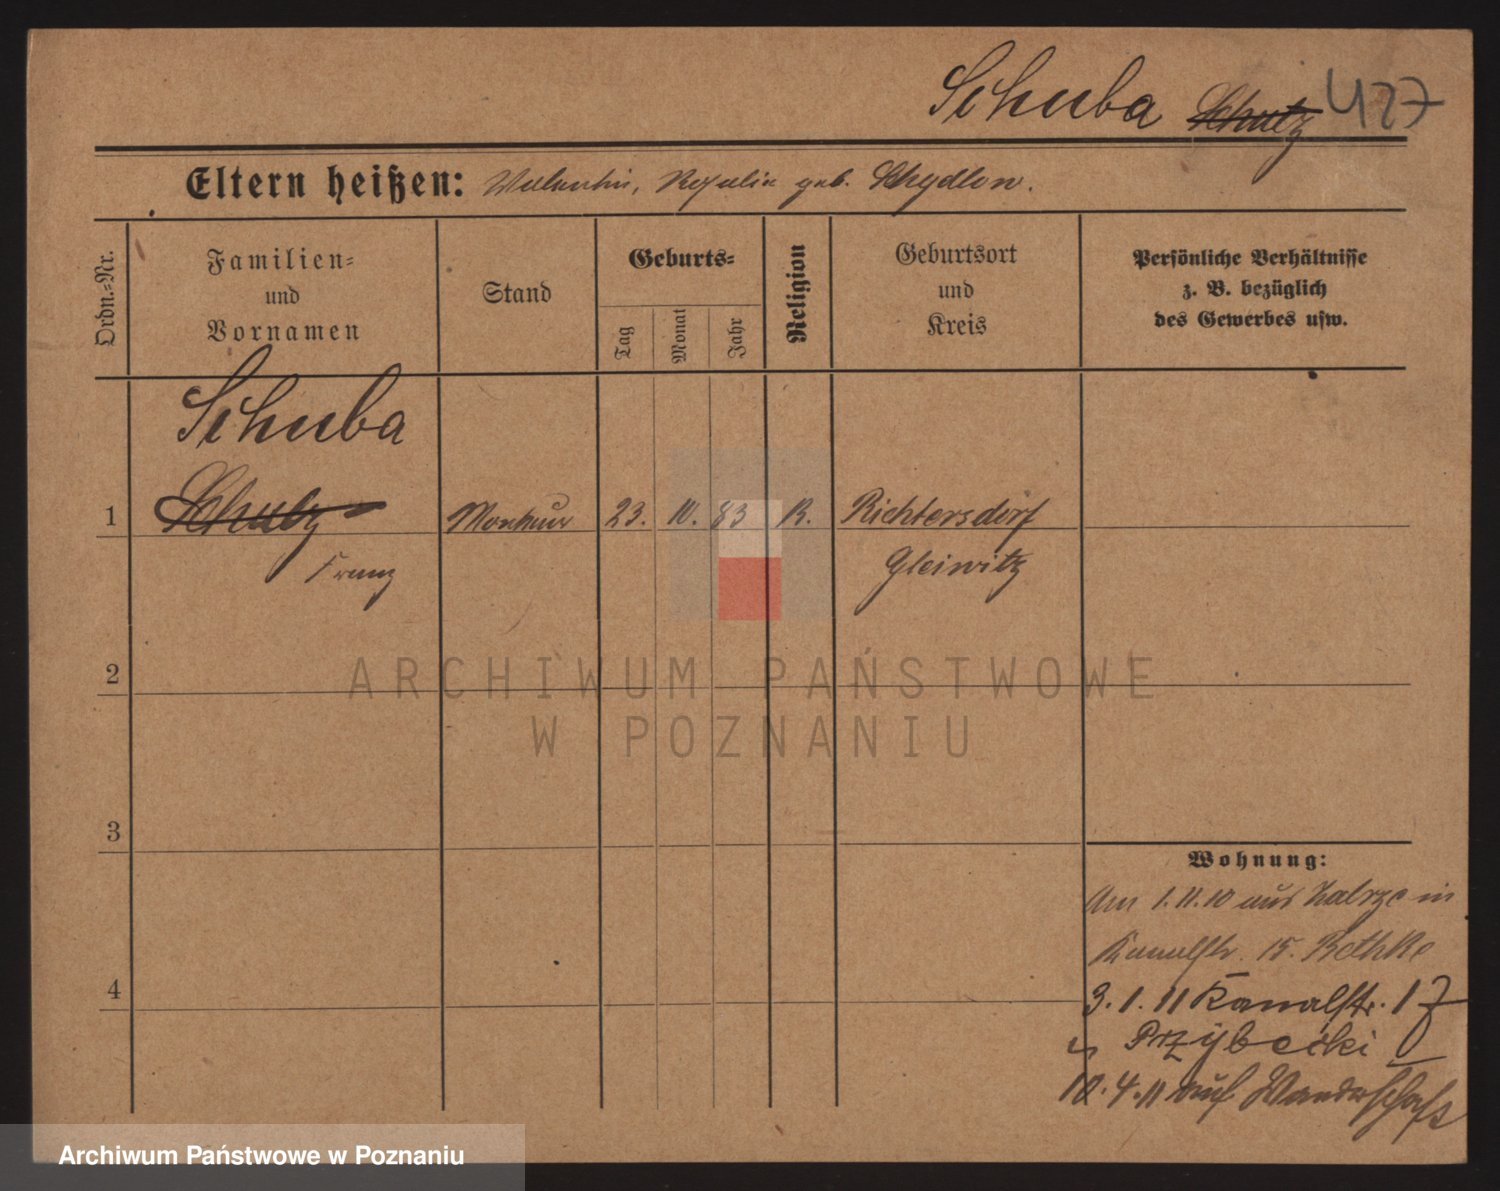 Schuba Schulz 427
Eltern heißen: Valentin, Rosalie geb. Schydlow.
Ordn.-Nr.
Familien-
und
Vornamen
Stand
Geburts-
Tag
Monat
Jahr
Religion
Geburtsort
und
Kreis
Persönliche Verhältnisse
z. B. bezüglich
des Gewerbes usw.
Schuba
1 Schulz Monteur 23. 10. 83 R. Richtersdorf
Franz Gleiwitz
2
ARCHIWUM PAŃSTWOWE
W POZNANIU
3
Wohnung:
Am 1.11.10 aus Zabrze in
Kanalstr. 15. Bethke
4
3.1.11 Kanalstr. 17
Przybecki
10.4.11 auf Wanderschaft
Archiwum Państwowe w Poznaniu